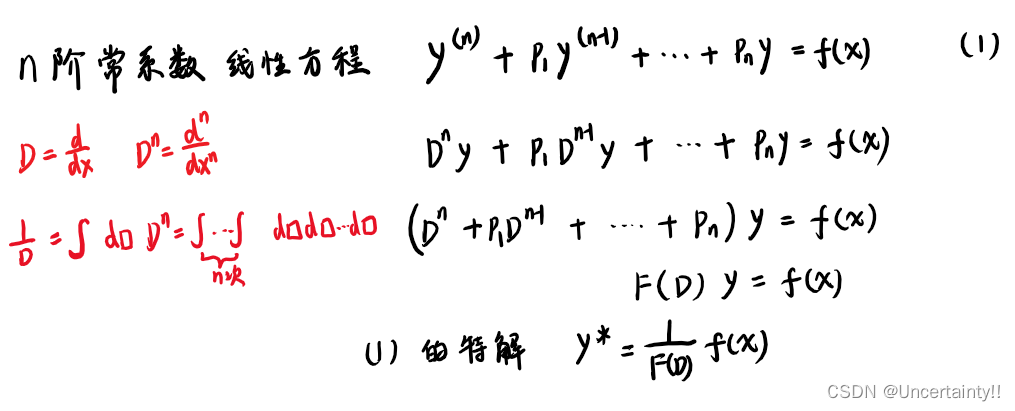 n阶常系数 线性方程 y^(n) + P₁y^(n-1) + ··· + Pₙy = f(x) (1)
D = d/dx Dⁿ = dⁿ/dxⁿ Dⁿy + P₁Dⁿ⁻¹y + ··· + Pₙy = f(x)
1/D = ∫ d□ Dⁿ = ∫···∫ d□d□···d□ (Dⁿ + P₁Dⁿ⁻¹ + ···· + Pₙ) y = f(x)
n次
F(D) y = f(x)
(1) 的特解 y* = 1/F(D) f(x)
CSDN @Uncertainty!!